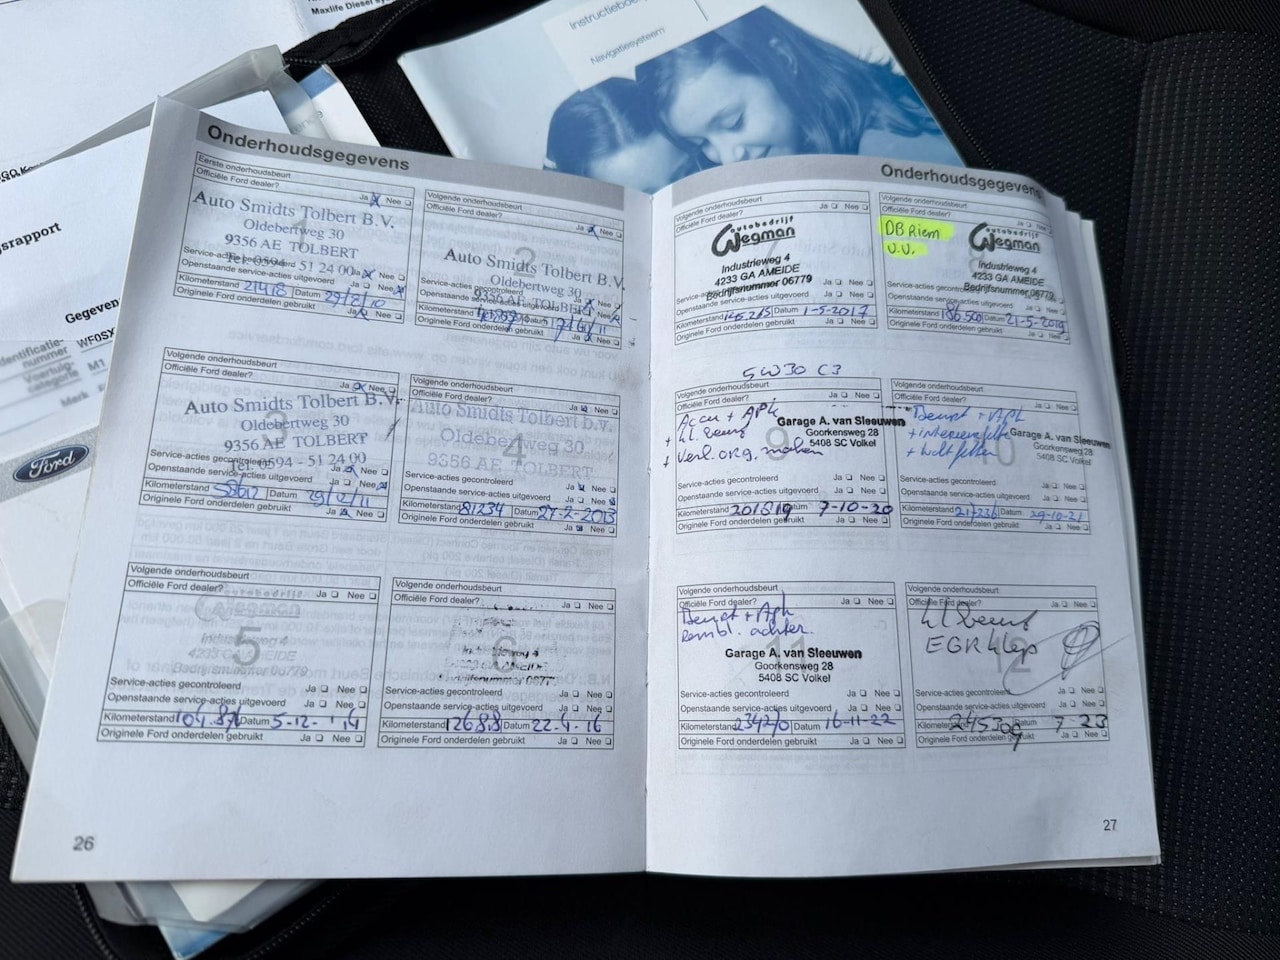 Maxlife Diesel
Instructieboek
Navigatiesysteem
Gegeven
WF0SX
M1
Merk
Ford
Onderhoudsgegevens
Eerste onderhoudsbeurt
Officiële Ford dealer? Ja Nee
Auto Smidts Tolbert B.V.
Oldebertweg 30
9356 AE TOLBERT
Tel. 0594 - 51 24 00
Service-acties gecontroleerd Ja Nee
Openstaande service-acties uitgevoerd Ja Nee
Kilometerstand 21418 Datum 29/8/10
Originele Ford onderdelen gebruikt Ja Nee
Volgende onderhoudsbeurt
Officiële Ford dealer? Ja Nee
2
Auto Smidts Tolbert B.V.
Oldebertweg 30
9356 AE TOLBERT
Service-acties gecontroleerd
Openstaande service-acties uitgevoerd Nee
Kilometerstand Datum
Originele Ford onderdelen gebruikt Ja Nee
Volgende onderhoudsbeurt
Officiële Ford dealer? Ja Nee
3
Auto Smidts Tolbert B.V.
Oldebertweg 30
9356 AE TOLBERT
Tel. 0594 - 51 24 00
Service-acties gecontroleerd Ja Nee
Openstaande service-acties uitgevoerd Ja Nee
Kilometerstand 58612 Datum 29/2/11
Originele Ford onderdelen gebruikt Ja Nee
Volgende onderhoudsbeurt
Officiële Ford dealer? Ja Nee
Auto Smidts Tolbert B.V.
Oldebertweg 30
4
9356 AE TOLBERT
Service-acties gecontroleerd Ja Nee
Openstaande service-acties uitgevoerd Ja Nee
Kilometerstand 81234 Datum 27-2-2013
Originele Ford onderdelen gebruikt Ja Nee
Volgende onderhoudsbeurt
Officiële Ford dealer? Ja Nee
Wegman
5
Industrieweg 4
4233 GA AMEIDE
Bedrijfsnummer 06779
Service-acties gecontroleerd Ja Nee
Openstaande service-acties uitgevoerd Ja Nee
Kilometerstand Datum 5-12-'14
Originele Ford onderdelen gebruikt Ja Nee
Volgende onderhoudsbeurt
Officiële Ford dealer? Ja Nee
6
Service-acties gecontroleerd Ja Nee
Openstaande service-acties uitgevoerd Ja Nee
Kilometerstand Datum 22-4-16
Originele Ford onderdelen gebruikt Ja Nee
26
Onderhoudsgegevens
Volgende onderhoudsbeurt
Officiële Ford dealer? Ja Nee
autobedrijf
Wegman
Industrieweg 4
4233 GA AMEIDE
Bedrijfsnummer 06779
Openstaande service-acties uitgevoerd Ja Nee
Kilometerstand 145.265 Datum 1-5-2017
Originele Ford onderdelen gebruikt Ja Nee
Volgende onderhoudsbeurt
Officiële Ford dealer? Ja Nee
DB Riem
V.V.
autobedrijf
Wegman
Industrieweg 4
4233 GA AMEIDE
Bedrijfsnummer 06779
Openstaande service-acties uitgevoerd
Kilometerstand 186.500 Datum 21-5-2019
Originele Ford onderdelen gebruikt Ja Nee
5W30 C3
Volgende onderhoudsbeurt
Officiële Ford dealer? Ja Nee
Accu + APK
+ kl. beurt
+ Verl. org. maken
9
Garage A. van Sleeuwen
Goorkensweg 28
5408 SC Volkel
Service-acties gecontroleerd Ja Nee
Openstaande service-acties uitgevoerd Ja Nee
Kilometerstand 201819 Datum 7-10-20
Originele Ford onderdelen gebruikt Ja Nee
Volgende onderhoudsbeurt
Officiële Ford dealer? Ja Nee
Beurt + Apk
+ interieurfilter
+ luchtfilter
10
Garage A. van Sleeuwen
Goorkensweg 28
5408 SC Volkel
Service-acties gecontroleerd Ja Nee
Openstaande service-acties uitgevoerd Ja Nee
Kilometerstand 217236 Datum 29-10-21
Originele Ford onderdelen gebruikt Ja Nee
Volgende onderhoudsbeurt
Officiële Ford dealer? Ja Nee
Beurt + Apk
Rembl. achter.
11
Garage A. van Sleeuwen
Goorkensweg 28
5408 SC Volkel
Service-acties gecontroleerd Ja Nee
Openstaande service-acties uitgevoerd Ja Nee
Kilometerstand 234210 Datum 16-11-22
Originele Ford onderdelen gebruikt Ja Nee
Volgende onderhoudsbeurt
Officiële Ford dealer? Ja Nee
kl. beurt
EGR klep
12
Service-acties gecontroleerd Ja Nee
Openstaande service-acties uitgevoerd Ja Nee
Kilometerstand Datum 7-23
Originele Ford onderdelen gebruikt Ja Nee
27